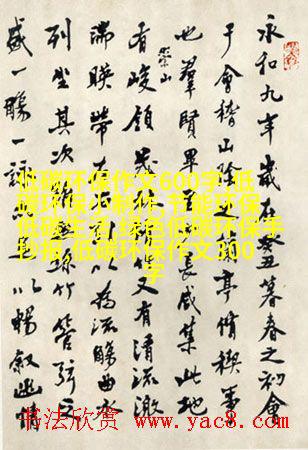 永和九年歲在癸丑暮春之初會
于會稽山陰之蘭亭脩稧事
也羣賢畢至少長咸集此地
有崇山峻領茂林脩竹又有清流激
湍暎帶左右以為流觴曲水
列坐其次雖無絲竹管弦之
盛一觴一詠足以暢敘幽情
低碳环保作文600字,低
碳环保小制作,节能环保,
低碳生活,绿色低碳环保手
抄报,低碳环保作文300
字
书法欣赏 www.yac8.com